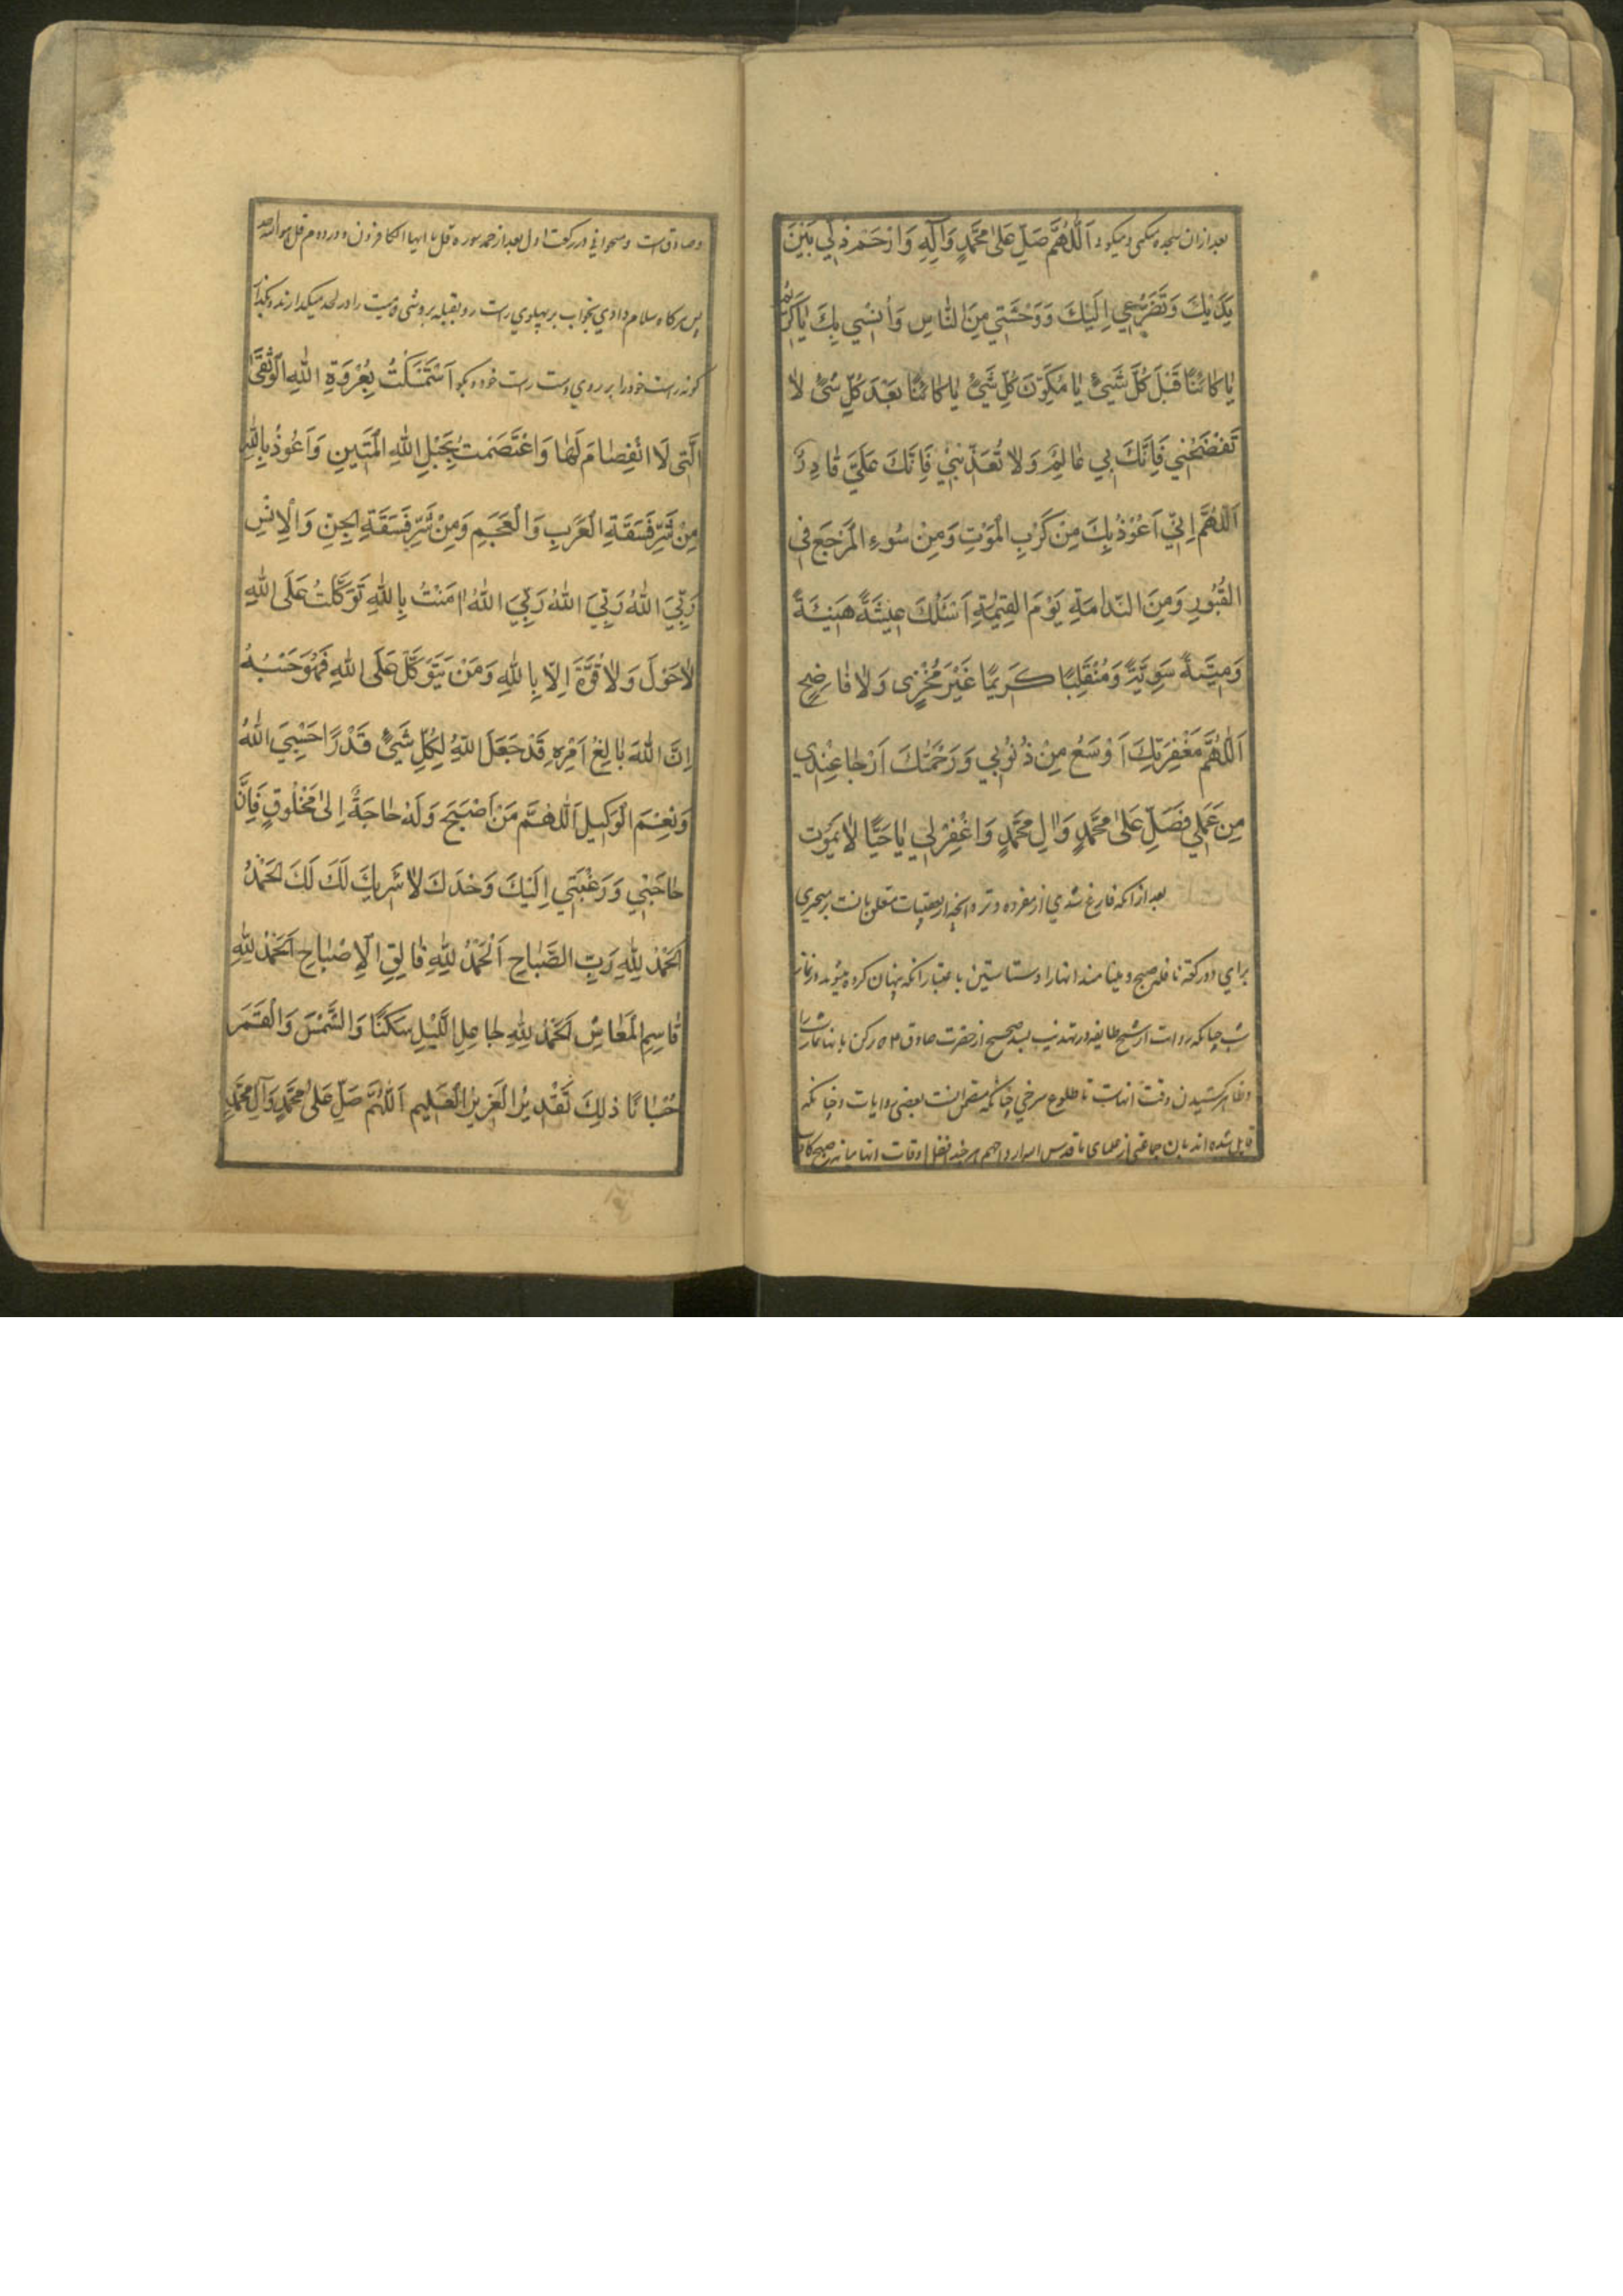 بعد ازان سجده میکنی و میکوئی اَللّٰهُمَّ صَلِّ عَلىٰ مُحَمَّدٍ وَآلِهِ وَارْحَمْ ذُلّي بَيْنَ
يَدَيْكَ وَتَضَرُّعِي اِلَيْكَ وَوَحْشَتِي مِنَ النّاسِ وَاُنْسِي بِكَ يٰا كَرِيْمُ
يٰا كٰائِنًا قَبْلَ كُلِّ شَيْءٍ يٰا مُكَوِّنَ كُلِّ شَيْءٍ يٰا كٰائِنًا بَعْدَ كُلِّ شَيْءٍ لاٰ
تَفْضَحْنِي فَاِنَّكَ بِي عٰالِمٌ وَلاٰ تُعَذِّبْنِي فَاِنَّكَ عَلَيَّ قٰادِرٌ
اَللّٰهُمَّ اِنّي اَعُوْذُ بِكَ مِنْ كَرْبِ الْمَوْتِ وَمِنْ سُوءِ الْمَرْجَعِ فِي
القُبُورِ وَمِنَ النَّدامَةِ يَوْمَ القِيٰمَةِ اَسْئَلُكَ عِيْشَةً هَنِيْئَةً
وَمِيْتَةً سَوِيَّةً وَمُنْقَلَبًا كَرِيمًا غَيْرَ مُخْزِي وَلاٰ فٰاضِحٍ
اَللّٰهُمَّ مَغْفِرَتُكَ اَوْسَعُ مِنْ ذُنُوْبِي وَرَحْمَتُكَ اَرْجٰا عِنْدِي
مِن عَمَلي فَصَلِّ عَلىٰ مُحَمَّدٍ وَاٰلِ مُحَمَّدٍ وَاغْفِرْلِي يٰا حَيًّا لاٰ يَمُوْت
بعد از انکه فارغ شدی از مفرده وتر و انچه از تعقیبات متعلق بانست برمیخیزی
برای دو رکعت نافله صبح و مینامند انها را دستاستین باعتبار انکه پنهان کرده میشوند در نماز
شب چنانکه روایت از شیخ طایفه در تهذیب بسند صحیح از حضرت صادق ع م که پر کن بانها نماز شب را
و ظاهر کشیدن وقت انهاست تا طلوع سرخی چنانکه متضمن انست بعضی روایات و چنانکه
قایل شده اند بان جماعتی از علمای ما قدس الله ارواحهم هر چند افضل اوقات انها میانه صبح کاذب
و صادق است و میخوانی در رکعت اول بعد از حمد سوره قل یا ایها الکافرون و در دوم قل هو الله احد
پس هرکاه سلام دادی بخواب بر پهلوی راست رو بقبله بروشی که میت را در لحد میکذارند و بکذار
کونه راست خود را بر روی دست راست خود و بکو اَسْتَمْسَكْتُ بِعُرْوَةِ اللّٰهِ الْوُثْقىٰ
الَّتِي لاَ انْفِصٰامَ لَهٰا وَاعْتَصَمْتُ بِحَبْلِ اللّٰهِ الْمَتِينِ وَاَعُوْذُ بِاللّٰهِ
مِنْ شَرِّ فَسَقَةِ الْعَرَبِ وَالْعَجَمِ وَمِنْ شَرِّ فَسَقَةِ الْجِنِّ وَالْاِنْسِ
رَبِّيَ اللّٰهُ رَبِّيَ اللّٰهُ رَبِّيَ اللّٰهُ اٰمَنْتُ بِاللّٰهِ تَوَكَّلْتُ عَلَى اللّٰهِ
لاٰحَوْلَ وَلاٰ قُوَّةَ اِلاّ بِاللّٰهِ وَمَنْ يَتَوَكَّلْ عَلَى اللّٰهِ فَهُوَ حَسْبُهُ
اِنَّ اللّٰهَ بٰالِغُ اَمْرِهِ قَدْ جَعَلَ اللّٰهُ لِكُلِّ شَيْءٍ قَدْرًا حَسْبِيَ اللّٰهُ
وَنِعْمَ الْوَكِيلُ اَللّٰهُمَّ مَنْ اَصْبَحَ وَلَهُ حٰاجَةٌ اِلىٰ مَخْلُوْقٍ فَاِنَّ
حٰاجَتِي وَرَغْبَتِي اِلَيْكَ وَحْدَكَ لاٰ شَرِيكَ لَكَ لَكَ الْحَمْدُ
اَلْحَمْدُ لِلّٰهِ رَبِّ الصَّبٰاحِ اَلْحَمْدُ لِلّٰهِ فٰالِقِ الْاِصْبٰاحِ اَلْحَمْدُ لِلّٰهِ
قٰاسِمِ الْمَعٰاشِ اَلْحَمْدُ لِلّٰهِ جٰاعِلِ اللَّيْلِ سَكَنًا وَالشَّمْسَ وَالْقَمَرَ
حُسْبٰانًا ذٰلِكَ تَقْدِيْرُ الْعَزِيْزِ الْعَلِيمِ اَللّٰهُمَّ صَلِّ عَلىٰ مُحَمَّدٍ وَآلِ مُحَمَّدٍ